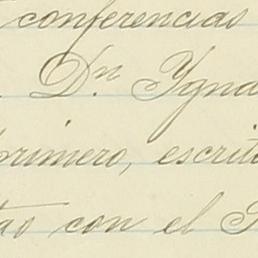 conferencias
Dn Ygna
primero, escrit
con el